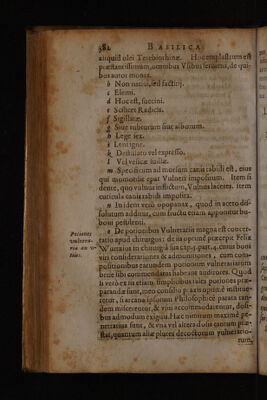 382 BASILICA
aliquid olei Terebinthinæ. Hoc emplastrum est
præstantissimum, omnibus Vsibus serviens, de qui-
bus autor monet.
b Non nativi, sed factitij.
c Elemi.
d Hoc est, succini.
e Radicis.
f Sigillatæ.
g Siue rubrorum siue alborum.
h Lege sex.
i
k Destillato vel expresso.
l Vel vesicæ suillæ.
m Specificum ad morsum canis rabidi est, eius
qui momordit epar Vulneri impositum. Item si
dente, quo vulnus inflictum, Vulnus laceres. item
cuticula canis rabidi imposita.
n Idem vero opopanax, quod in aceto dis-
solutum additur, cum fructu etiam apponitur bu-
boni pestilenti.
o De potionibus Vulnerariis magna est concer-
tatio apud chirurgos: de iis optime præcepit Felix
Wurtzius in chirurgia sua cap. 9. part. 4. cuius boni
viri considerationes & admonitiones, cum com-
positionibus earundem potionum vulnerariarum
bene sibi commendatas habeant auditores. Quod
si vero ex iis etiam, simplicibus tales potiones præ-
parandæ sint, meo consilio praxis optime institue-
retur, si arcana ipsorum Philosophice parata tan-
dem miscerentur, & vini accommodarentur, dosi-
bus admodum exiguis. Hæc nimirum maxime pe-
netrativa sunt, & vna vel altera dosis tantum præ-
stat, quantum aliæ plures decoctorum vulnerario-
rum,
Potiones
vulnera-
riæ an v-
tiles.